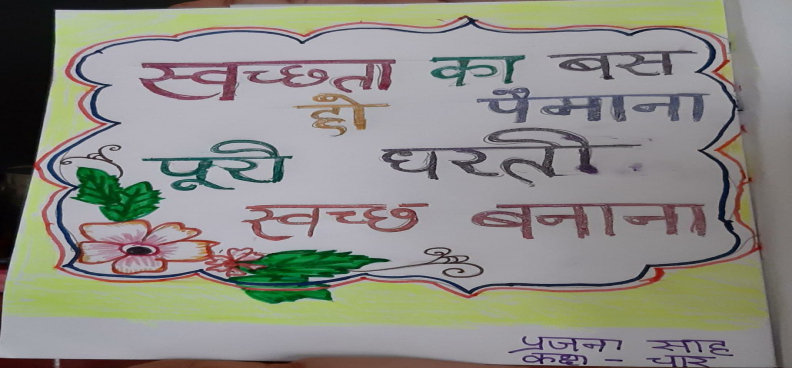 स्वच्छता का बस
हो पैमाना
पूरी धरती
स्वच्छ बनाना
प्रजना साह
कक्षा - चार